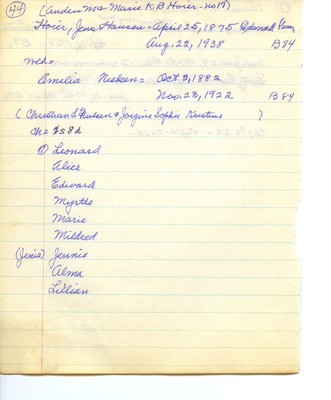 44
(under Mrs Marie K.B Hoier - no 17)
Hoier, Jens Hansen - April 25, 1875
Aug. 22, 1938 B 84
med=
Amelia Nielsen = Oct 9, 1882
Nov. 28, 1922 B 84
(Christian & Jorgine Sophie Kristine )
ch = 2s 8d
① Leonard
Alice
Edward
Myrtle
Marie
Mildred
(Jenia) Jennie
Alma
Lillian